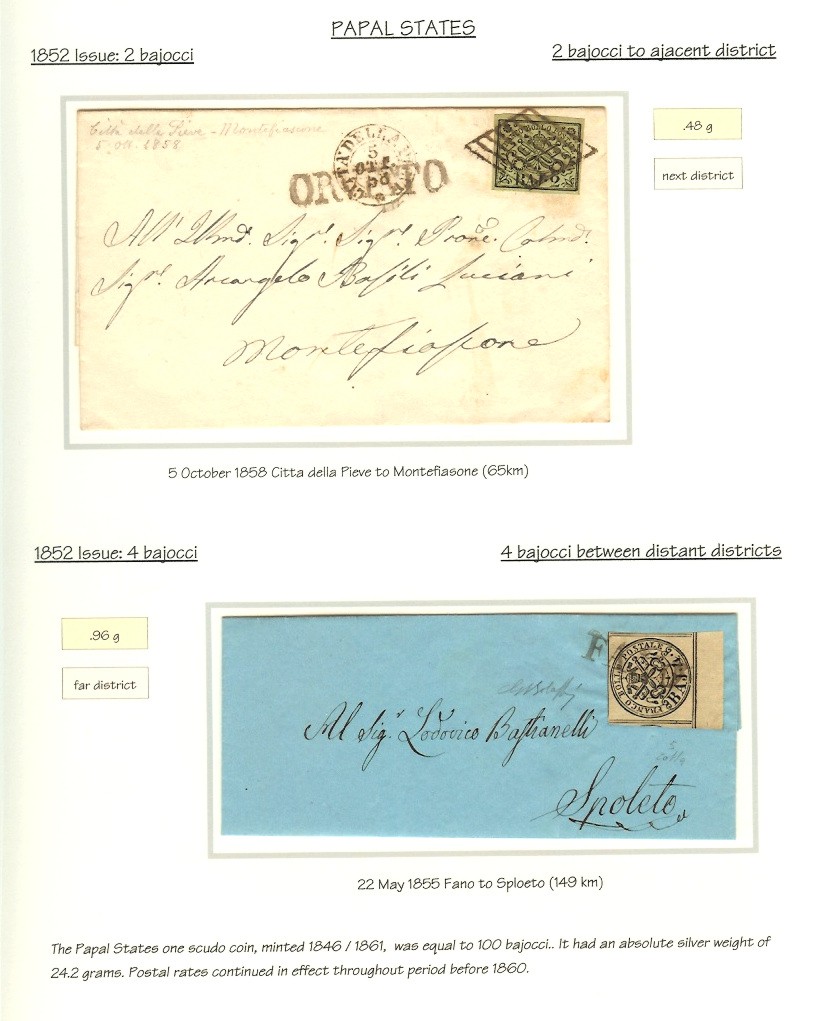 PAPAL STATES
1852 Issue: 2 bajocci
2 bajocci to ajacent district
Città della Pieve - Montefiascone
5 ott. 1858
CITTA DELLA
5
OTT.
58
ORVIETO
BOLLO
BAJ 2
.48 g
next district
All' Illmo. Sigr. Sigr. Prone. Colmo.
Sigr. Arcangelo Basili Luciani
Montefiascone
5 October 1858 Citta della Pieve to Montefiasone (65km)
1852 Issue: 4 bajocci
4 bajocci between distant districts
.96 g
far district
F
FRANCO BOLLO POSTALE
BAJ. 4.
Al Sigr. Lodovico Bastianelli
Spoleto
22 May 1855 Fano to Sploeto (149 km)
The Papal States one scudo coin, minted 1846 / 1861, was equal to 100 bajocci.. It had an absolute silver weight of
24.2 grams. Postal rates continued in effect throughout period before 1860.